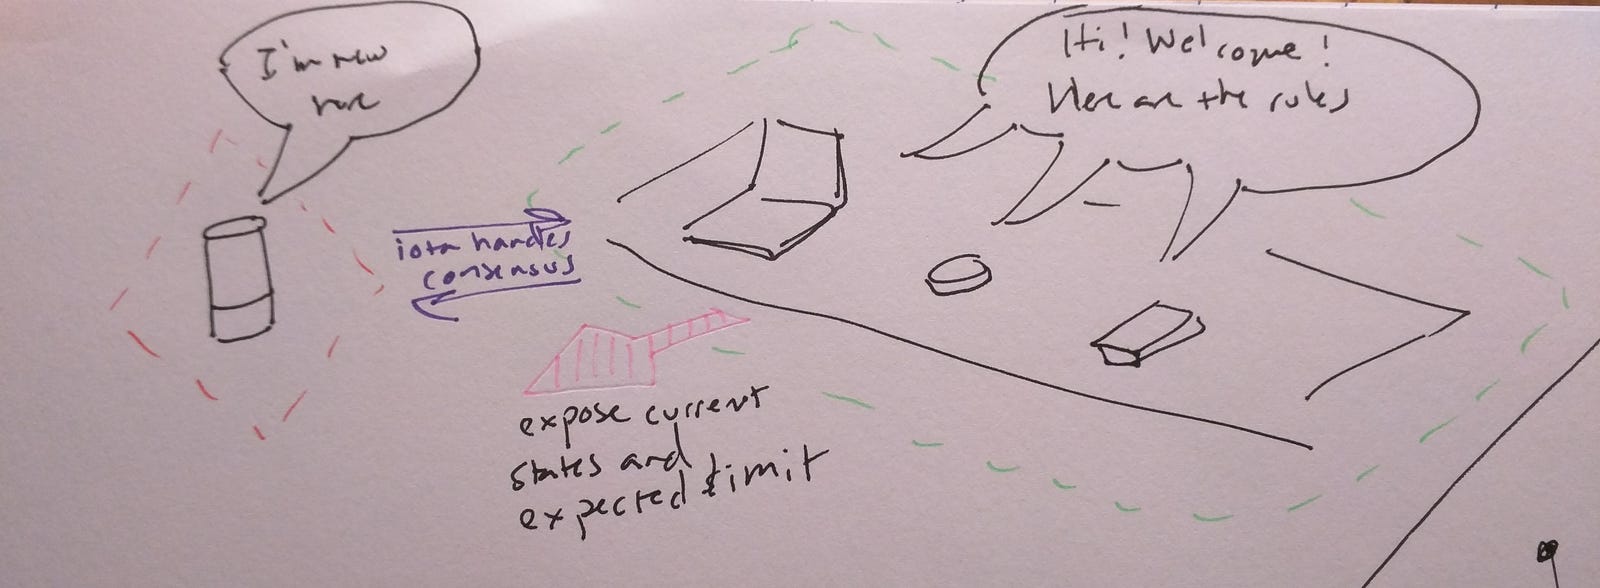 I'm new
here
Hi! Welcome!
Here are the rules
iota handles
consensus
expose current
states and
expected limit